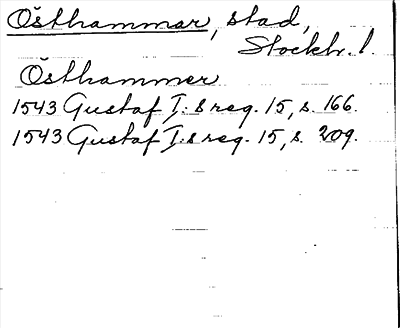 Östhammar, stad,
Stockh. l.
Östhammer
1543 Gustaf I:s reg. 15, s. 166.
1543 Gustaf I:s reg. 15, s. 209.